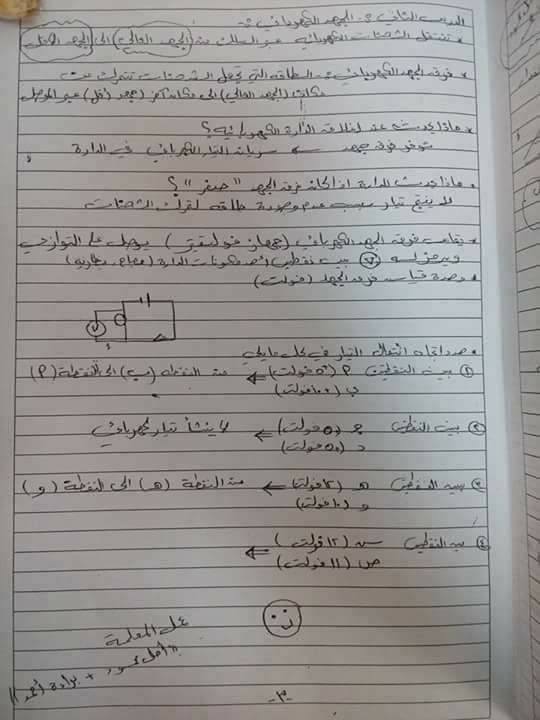 الدرس الثاني :- الجهد الكهربائي :-
* تنتقل الشحنات الكهربائية عبر السلك من (الجهد العالي) إلى (الجهد الأقل)
* فرق الجهد الكهربائي :- الطاقة التي تجعل الشحنات تتحرك من
مكان (الجهد العالي) إلى مكان آخر (جهد أقل) عبر الموصل
* ماذا يحدث عند إغلاق الدارة الكهربائية؟
توفر فرق جهد ← سريان التيار الكهربائي في الدارة
* ماذا يحدث للدارة إذا كان فرق الجهد "صفر"؟
لا ينتج تيار بسبب عدم وجود طاقة لحركة الشحنات
* يقاس فرق الجهد الكهربائي (جهاز فولتميتر) يوصل على التوازي
ويرمز له (V) بين نقطتين مكونات الدارة (مصباح، بطارية)
* وحدة قياس فرق الجهد (فولت)
V
* حدد اتجاه انتقال التيار في كل مما يلي
① بين النقطتين أ (٥٠ فولت) ← من النقطة (ب) إلى النقطة (أ)
ب (١٠٠ فولت)
② بين النقطتين ج (٥٠ فولت) ← لا ينشأ تيار كهربائي
د (٥٠ فولت)
③ بين النقطتين هـ (١٢ فولت) ← من النقطة (هـ) إلى النقطة (و)
و (١٠ فولت)
④ بين النقطتين س (١٢ فولت) ←
ص (١١ فولت)
عمل المعلمة
-٣-